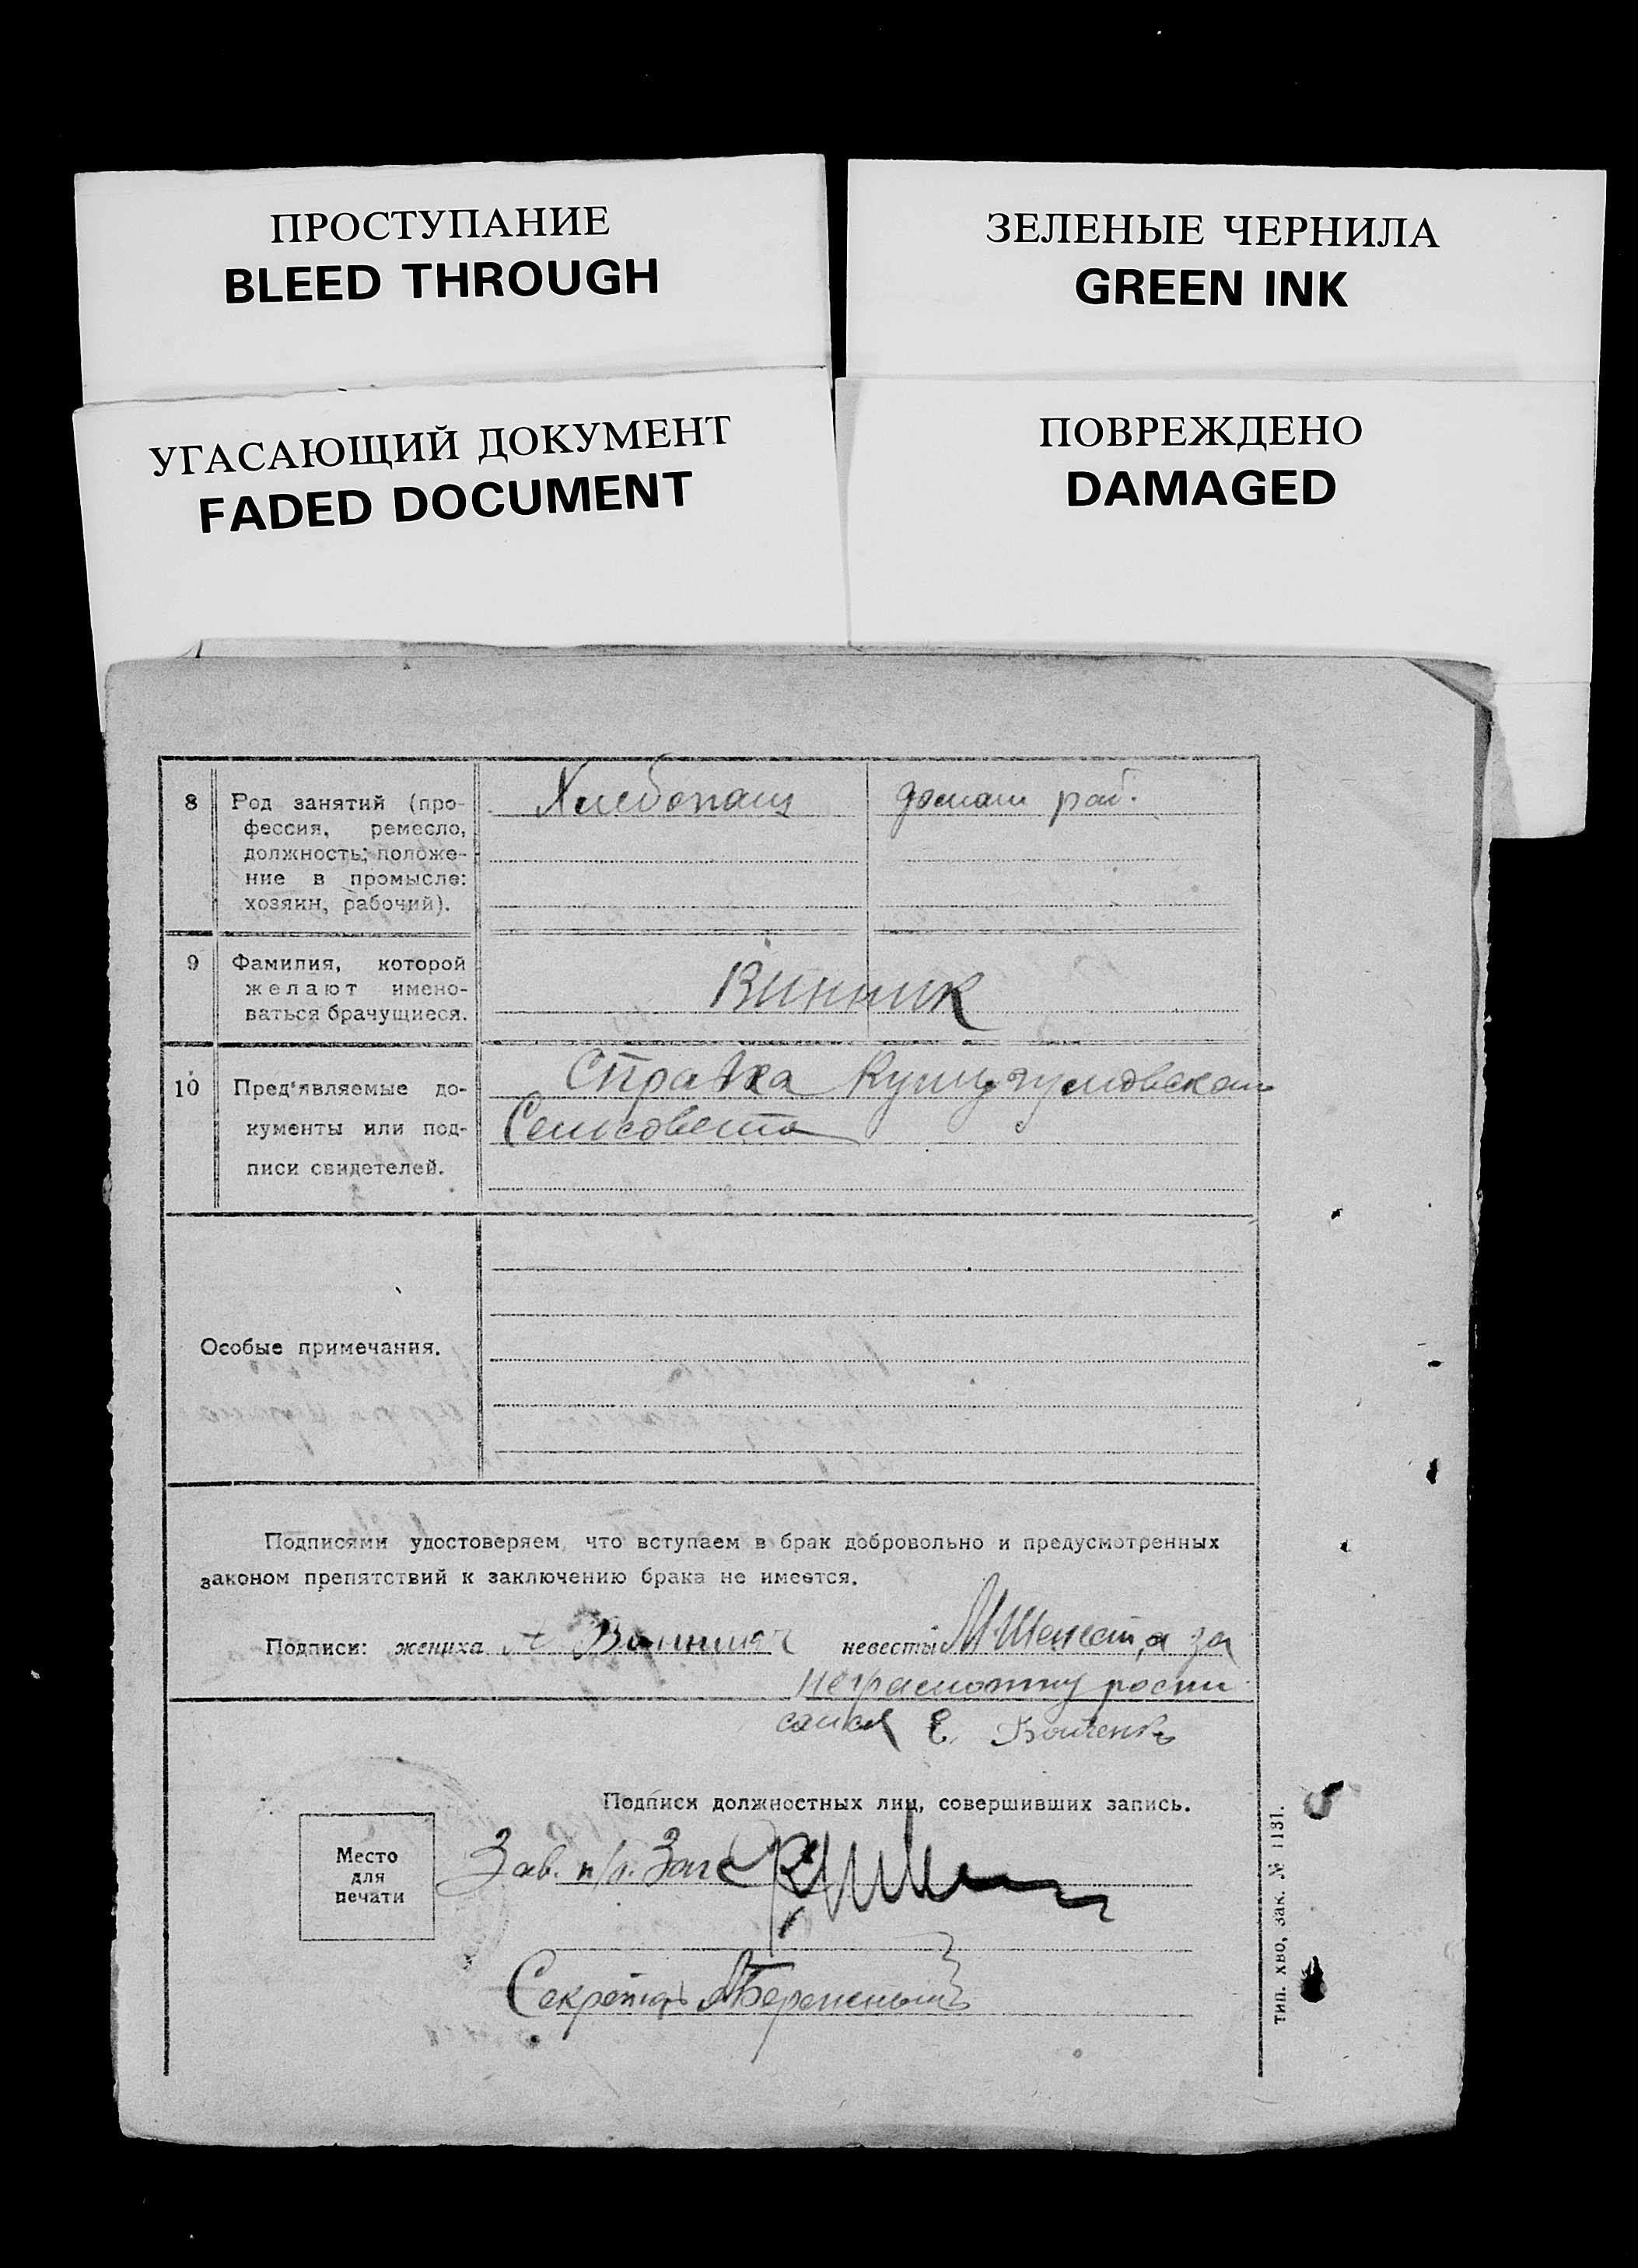 ПРОСТУПАНИЕ
BLEED THROUGH
ЗЕЛЕНЫЕ ЧЕРНИЛА
GREEN INK
УГАСАЮЩИЙ ДОКУМЕНТ
FADED DOCUMENT
ПОВРЕЖДЕНО
DAMAGED
8 Род занятий (про-
фессия, ремесло,
должность; положе-
ние в промысле:
хозяин, рабочий).
Хлебопаш
домаш раб.
9 Фамилия, которой
желают имено-
ваться брачущиеся.
Винник
10 Пред'являемые до-
кументы или под-
писи свидетелей.
Справка Кушугумовского
Сельсовета
Особые примечания.
Подписями удостоверяем, что вступаем в брак добровольно и предусмотренных
законом препятствий к заключению брака не имеется.
Подписи: жениха невесты М Шепет, а за
неграмотну роспи
сался Е. Войченко
Подписи должностных лиц, совершивших запись.
Место
для
печати
Зав. п/о. Загс
Секретарь
тип. хво, зак. № 1131.